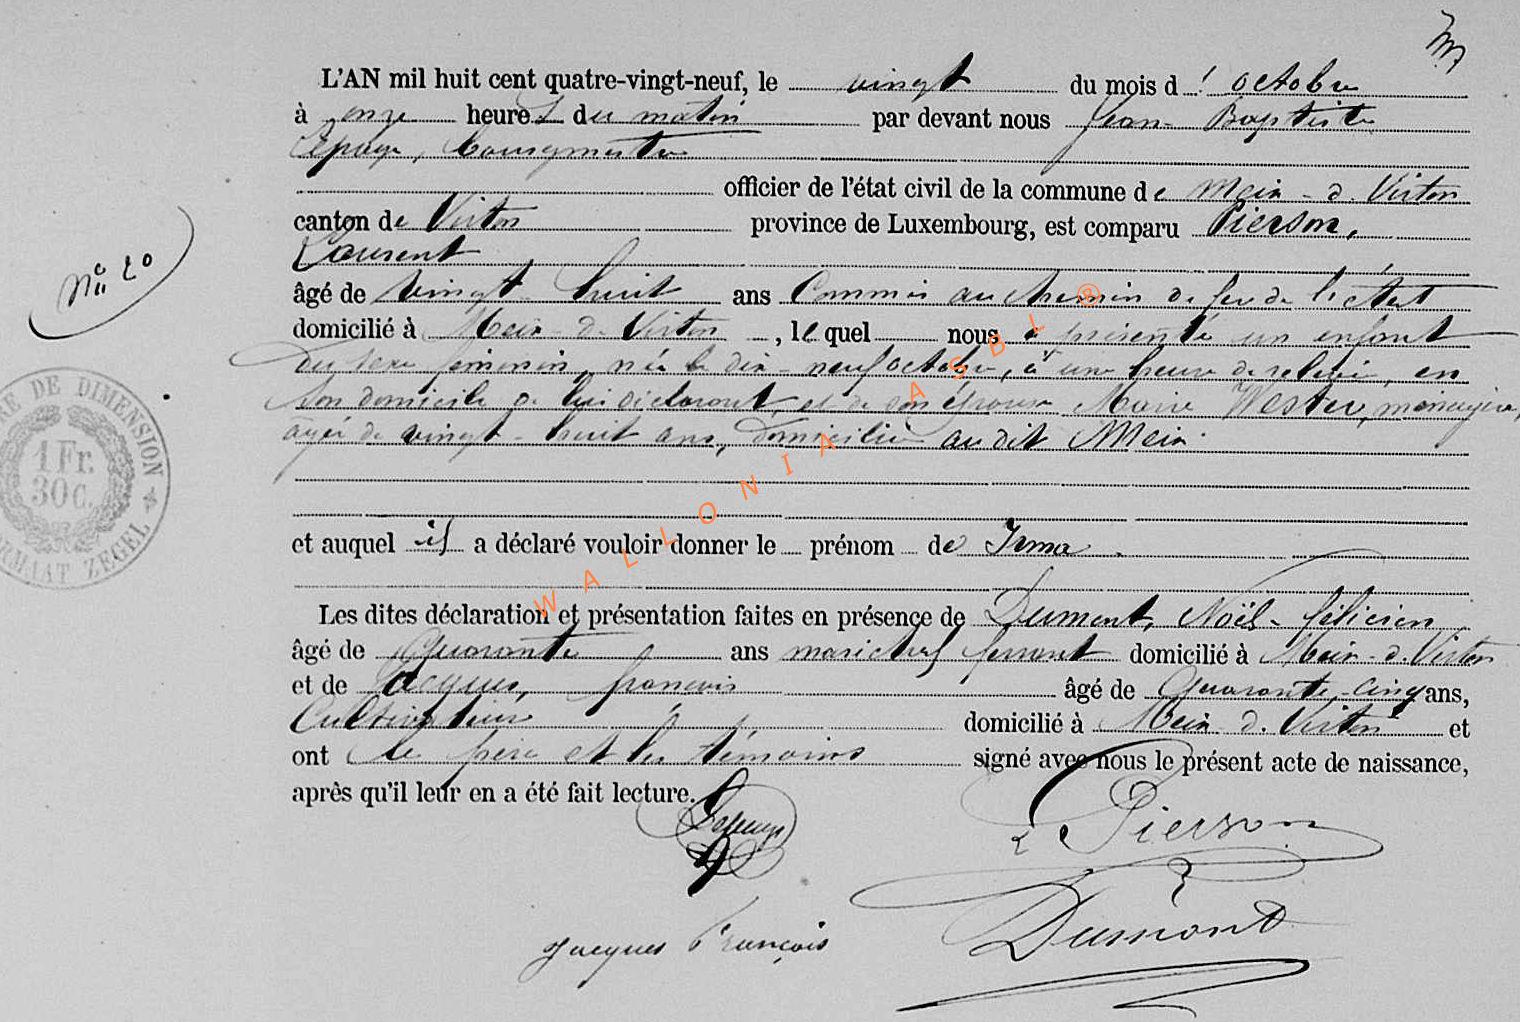 L'AN mil huit cent quatre-vingt-neuf, le vingt du mois d' octobre
à onze heures du matin par devant nous Jean Baptiste
Lepage, bourgmestre
officier de l'état civil de la commune de Meix-d-Virton
canton de Virton province de Luxembourg, est comparu Pierson,
Laurent
âgé de vingt-huit ans Commis au chemin de fer de l'état
domicilié à Meix-d-Virton, lequel nous a présenté un enfant
du sexe féminin, née le dix-neuf octobre, à une heure de relevée, en
son domicile de lui déclarant, et de son épouse Marie Wester, ménagère,
agée de vingt-huit ans, domiciliée audit Meix.
et auquel il a déclaré vouloir donner le prénom de Irma.
Les dites déclaration et présentation faites en présence de Dumont, Noël-félicien
âgé de quarante ans maréchal ferrant domicilié à Meix-d-Virton
et de Jacques, françois âgé de quarante-cinq ans,
Cultivateur domicilié à Meix-d-Virton et
ont le père et les témoins signé avec nous le présent acte de naissance,
après qu'il leur en a été fait lecture.
N° 20
RE DE DIMENSION
1 Fr.
30 C.
RMAAT ZEGEL
WALLONIA ASBL ®
Pierson
Dumont
Jacques François